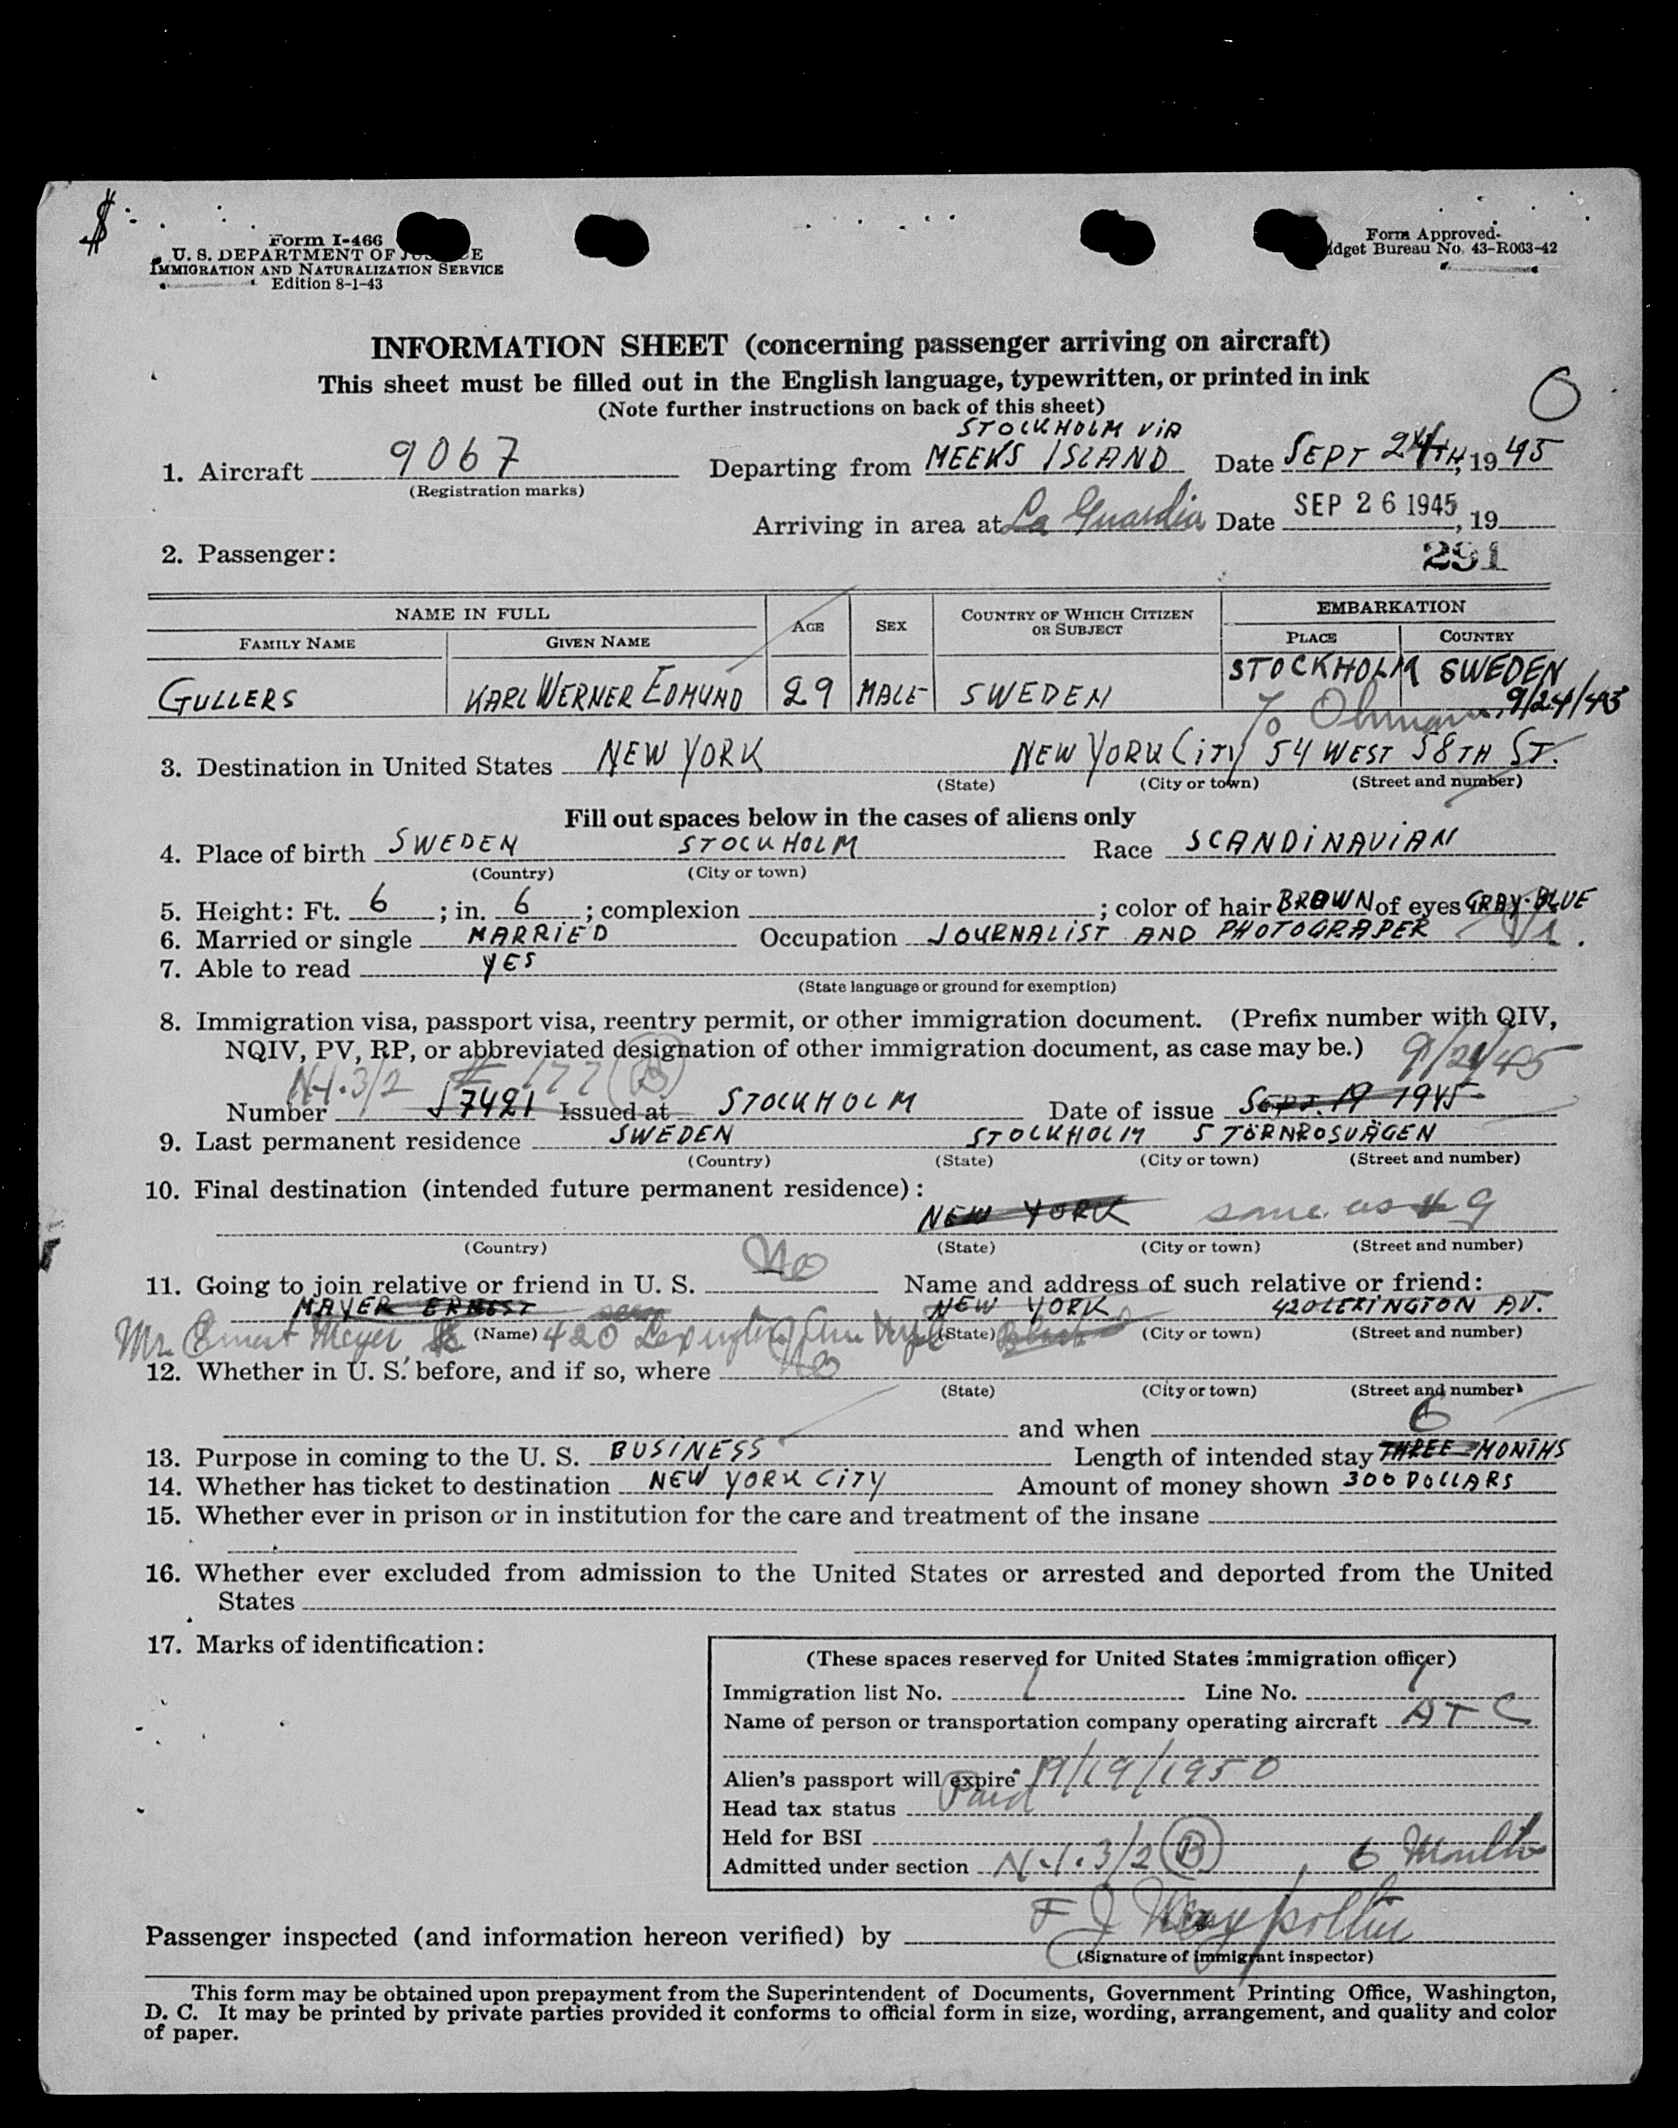 $
Form I-466
U. S. DEPARTMENT OF JUSTICE
IMMIGRATION AND NATURALIZATION SERVICE
Edition 8-1-43
Form Approved.
dget Bureau No. 43-R063-42
INFORMATION SHEET (concerning passenger arriving on aircraft)
This sheet must be filled out in the English language, typewritten, or printed in ink
(Note further instructions on back of this sheet)
STOCKHOLM VIA
1. Aircraft 9067 Departing from MEEKS ISLAND Date SEPT 24TH, 1945
(Registration marks)
Arriving in area at La Guardia Date SEP 26 1945, 19
2. Passenger: 291
NAME IN FULL AGE SEX COUNTRY OF WHICH CITIZEN OR SUBJECT EMBARKATION
FAMILY NAME GIVEN NAME PLACE COUNTRY
GULLERS KARL WERNER EDMUND 29 MALE SWEDEN STOCKHOLM SWEDEN
% Ohman 9/24/45
3. Destination in United States NEW YORK NEW YORK CITY 54 WEST 58TH ST.
(State) (City or town) (Street and number)
Fill out spaces below in the cases of aliens only
4. Place of birth SWEDEN STOCKHOLM Race SCANDINAVIAN
(Country) (City or town)
5. Height: Ft. 6; in. 6; complexion ; color of hair BROWN of eyes GRAY-BLUE
6. Married or single MARRIED Occupation JOURNALIST AND PHOTOGRAPER
7. Able to read YES
(State language or ground for exemption)
8. Immigration visa, passport visa, reentry permit, or other immigration document. (Prefix number with QIV,
NQIV, PV, RP, or abbreviated designation of other immigration document, as case may be.) 9/21/45
N.I. 3/2 # 177 (B)
Number 7421 Issued at STOCKHOLM Date of issue SEPT. 19 1945
9. Last permanent residence SWEDEN STOCKHOLM 5 TÖRNROSVÄGEN
(Country) (State) (City or town) (Street and number)
10. Final destination (intended future permanent residence):
NEW YORK same as # 9
(Country) (State) (City or town) (Street and number)
11. Going to join relative or friend in U. S. No Name and address of such relative or friend:
MAYER ERNEST NEW YORK 420 LEXINGTON AV.
(Name) (State) (City or town) (Street and number)
Mr. Ernest Meyer 420 Lexington Ave
12. Whether in U. S. before, and if so, where No
(State) (City or town) (Street and number)
and when
6
13. Purpose in coming to the U. S. BUSINESS Length of intended stay THREE MONTHS
14. Whether has ticket to destination NEW YORK CITY Amount of money shown 300 DOLLARS
15. Whether ever in prison or in institution for the care and treatment of the insane
16. Whether ever excluded from admission to the United States or arrested and deported from the United
States
17. Marks of identification:
(These spaces reserved for United States immigration officer)
Immigration list No. 1 Line No. 1
Name of person or transportation company operating aircraft ATC
Alien's passport will expire 9/19/1950
Head tax status Paid
Held for BSI
Admitted under section N.I. 3/2 (B), 6 Months
Passenger inspected (and information hereon verified) by F J
(Signature of immigrant inspector)
This form may be obtained upon prepayment from the Superintendent of Documents, Government Printing Office, Washington,
D. C. It may be printed by private parties provided it conforms to official form in size, wording, arrangement, and quality and color
of paper.